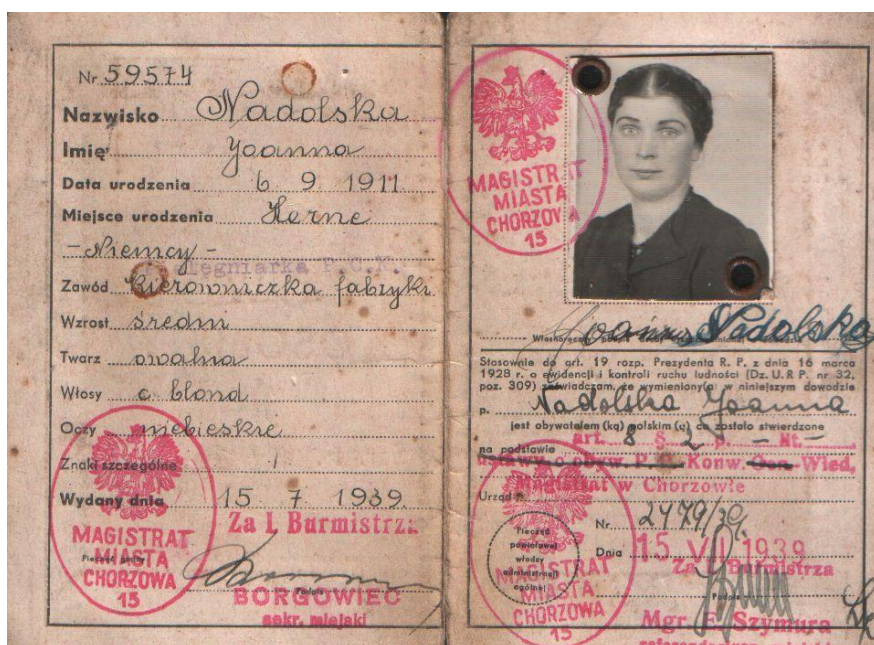 Nr 59574
Nazwisko Nadolska
Imię Joanna
Data urodzenia 6 9 1911
Miejsce urodzenia Herne
- Niemcy -
Pielęgniarka P.C.K.
Zawód kierowniczka fabryki
Wzrost średni
Twarz owalna
Włosy c. blond
Oczy niebieskie
Znaki szczególne
Wydany dnia 15 7 1939.
Za I. Burmistrza
MAGISTRAT
MIASTA
CHORZOWA
15
Pieczęć gminy
Podpis
BORGOWIEC
sekr. miejski
MAGISTRAT
MIASTA
CHORZOWA
15
Joanna Nadolska
Stosownie do art. 19 rozp. Prezydenta R. P. z dnia 16 marca
1928 r. o ewidencji i kontroli ruchu ludności (Dz. U. R P. nr 32,
poz. 309) zaświadczam, że wymieniony(a) w niniejszym dowodzie
p. Nadolska Joanna
jest obywatelem (ką) polskim (ą) co zostało stwierdzone
na podstawie art. 8 § 2 p. - Nt. -
ustawy o obyw. P. P. Konw. Gen. Wied,
Magistrat w Chorzowie
Urząd
Nr. 2479/39.
Dnia 15. VII 1939
Za I. Burmistrza
Pieczęć
powiatowej
władzy
administracji
ogólnej
MAGISTRAT
MIASTA
CHORZOWA
15
Podpis
Mgr. E. Szymura